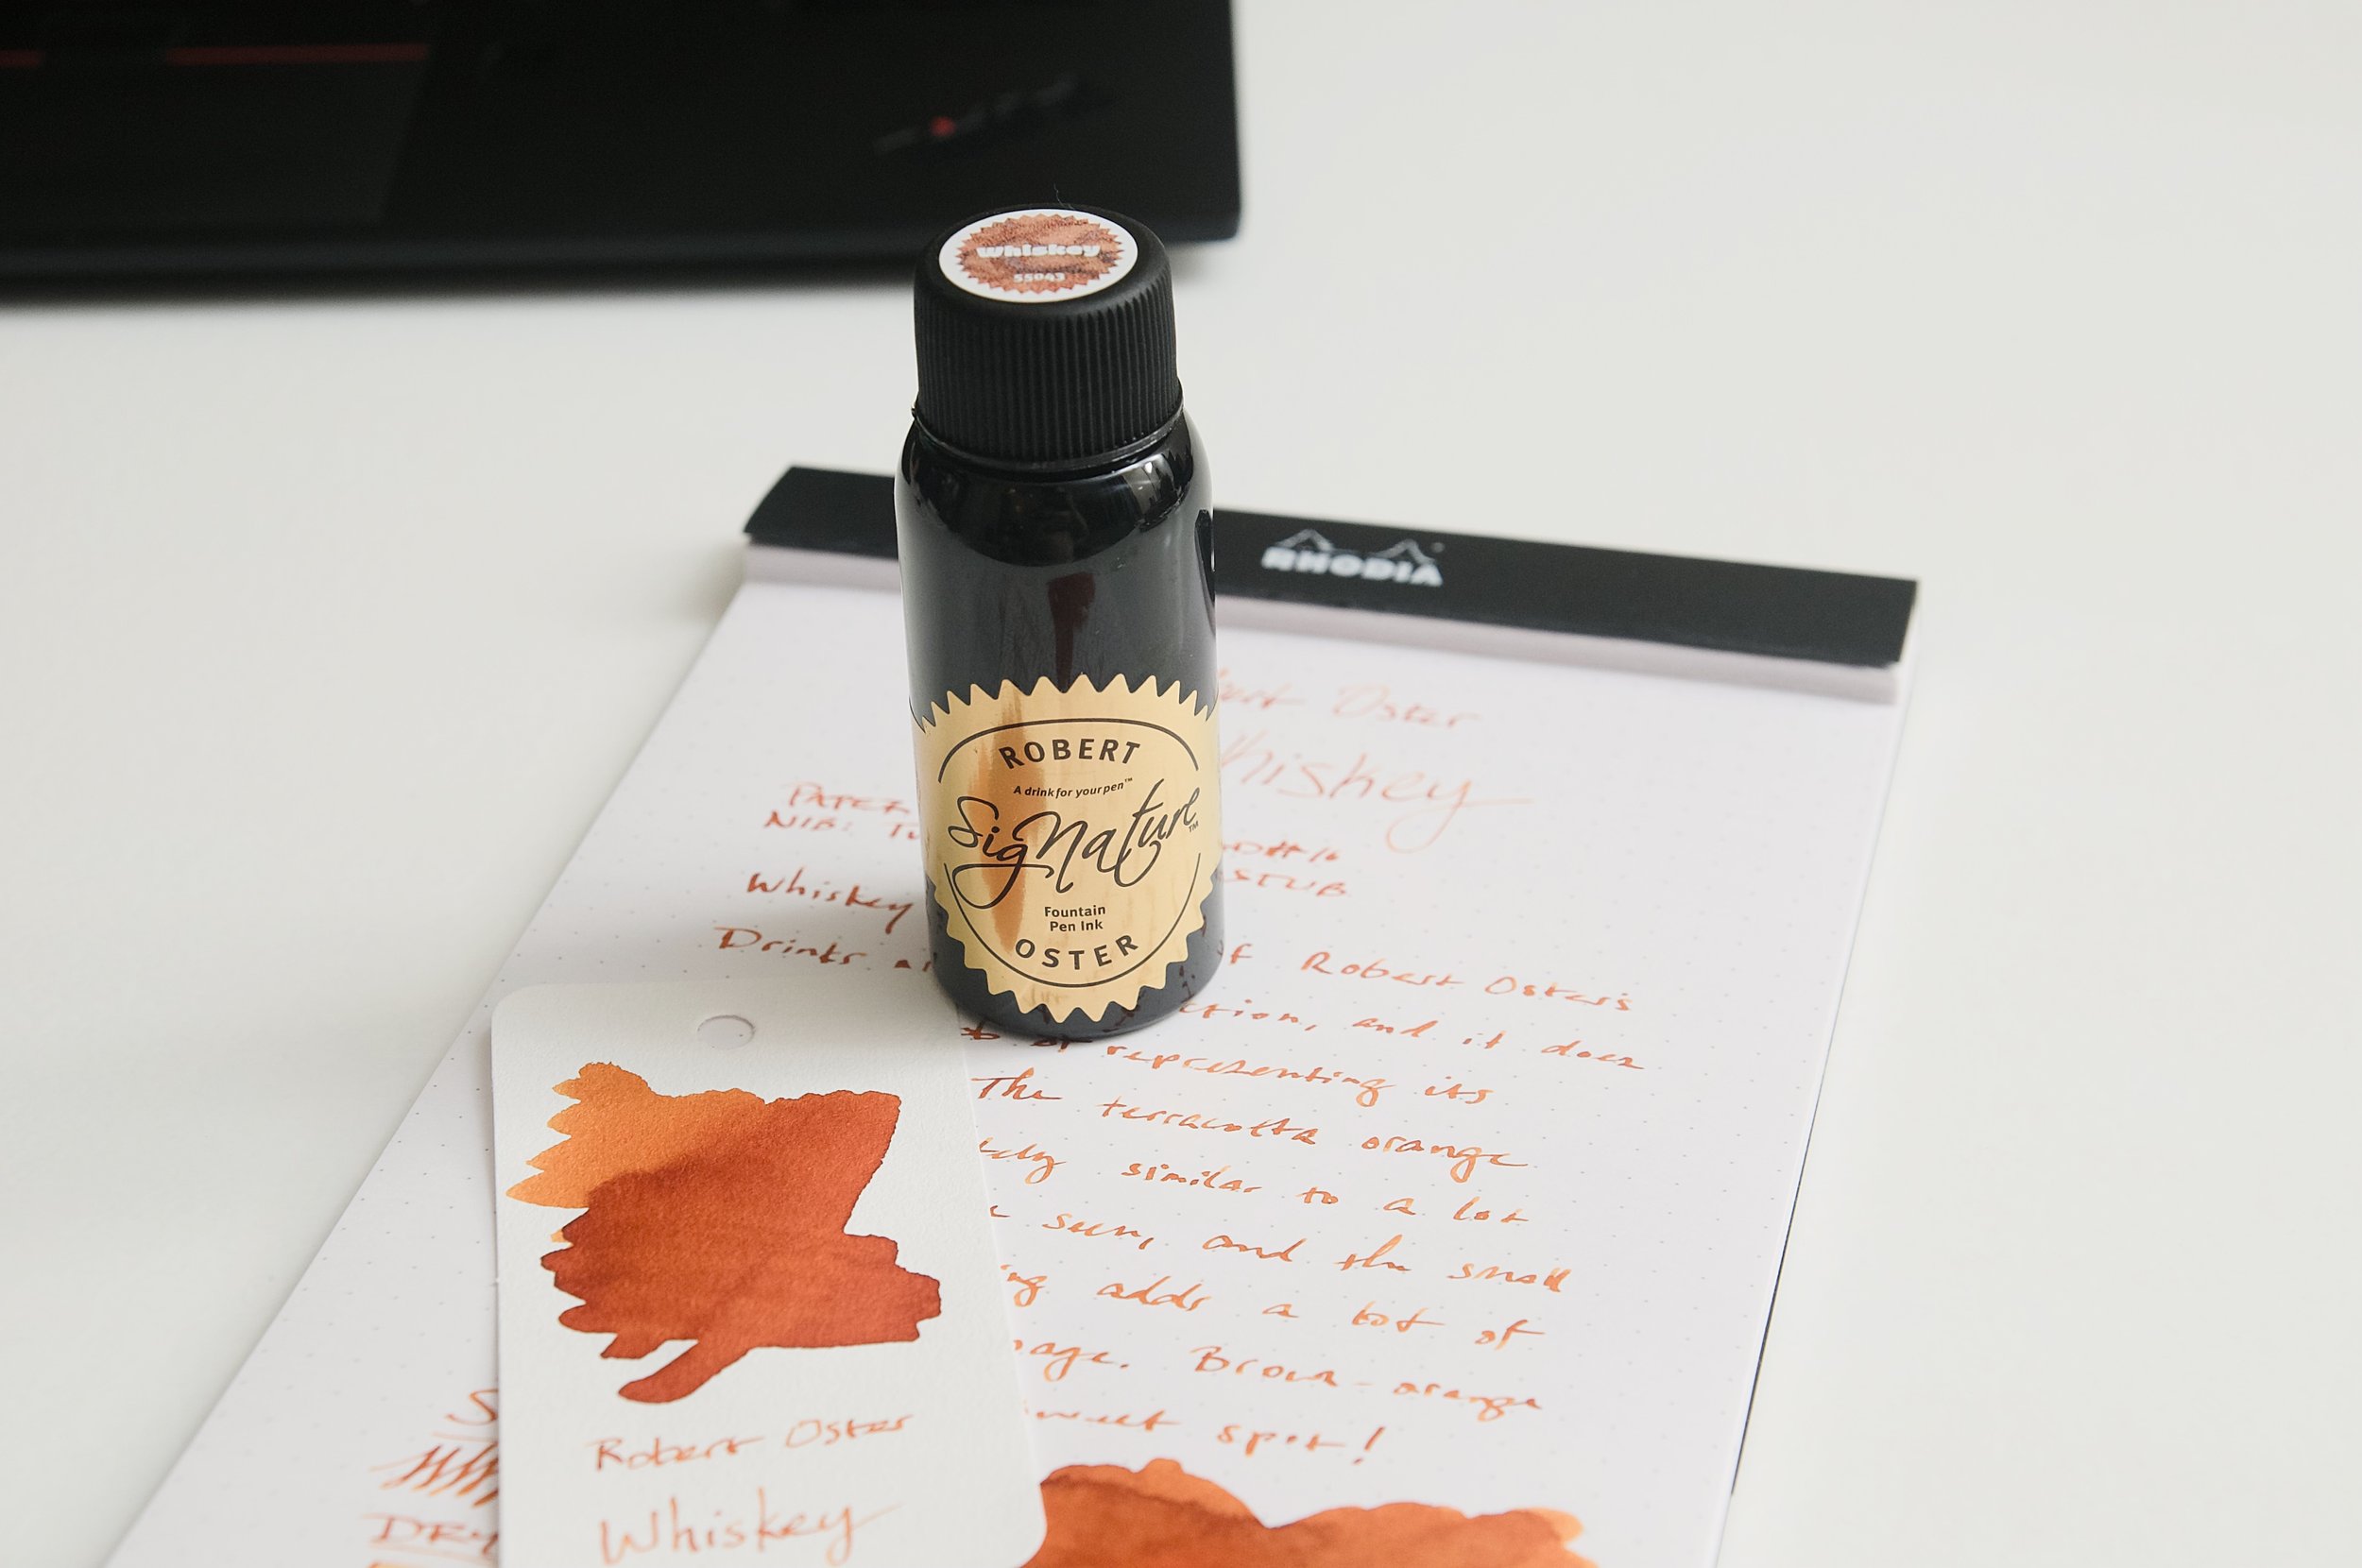 Whiskey
55043
RHODIA
ROBERT
A drink for your pen™
SigNature™
Fountain
Pen Ink
OSTER
Oster
Whiskey
PAPER
NIB:
STUB
Whiskey
Drinks of Robert Oster's
and it does
of representing its
The terracotta orange
similar to a lot
seen, and the small
adds a lot of
page. Brown-orange
sweet spot!
Robert Oster
Whiskey